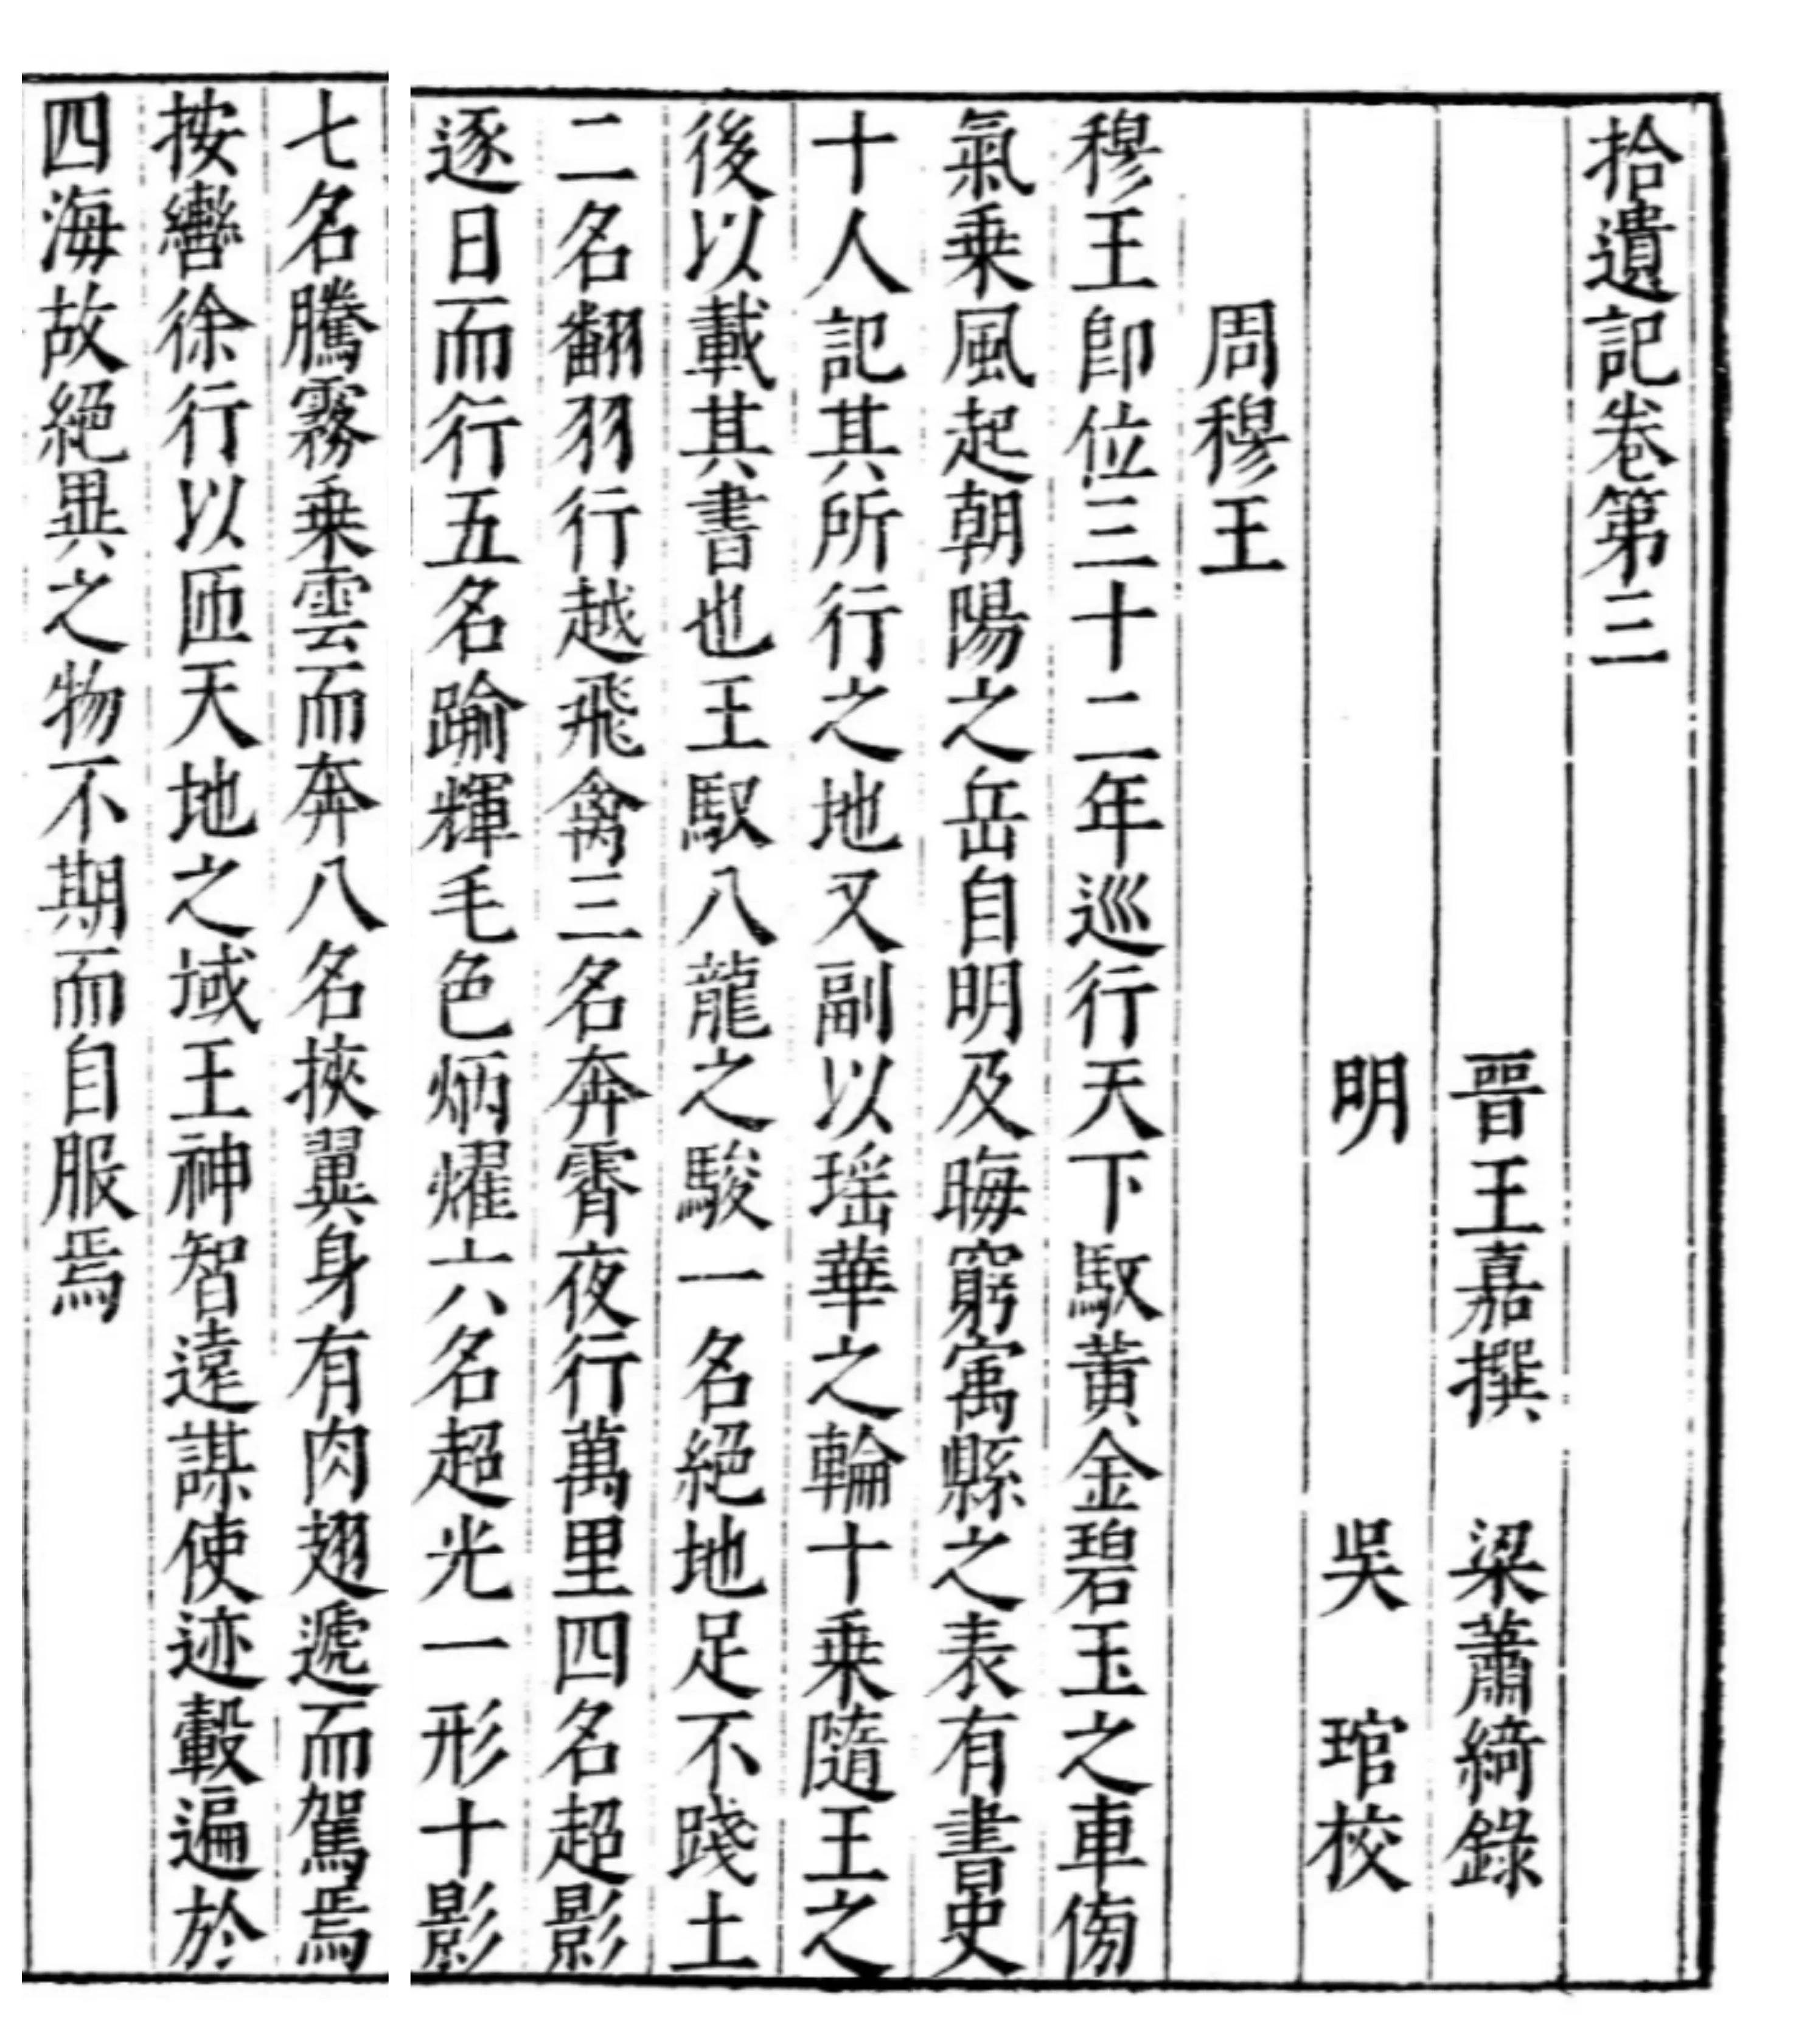 拾遺記卷第三
晉王嘉撰　梁蕭綺錄
明　吳　琯校
周穆王
穆王卽位三十二年巡行天下馭黃金碧玉之車傍
氣乗風起朝陽之岳自明及晦窮寓縣之表有書史
十人記其所行之地又副以瑶華之輪十乗隨王之
後以載其書也王馭八龍之駿一名絕地足不踐土
二名翻羽行越飛禽三名奔霄夜行萬里四名超影
逐日而行五名踰輝毛色炳燿六名超光一形十影
七名騰霧乗雲而奔八名挾翼身有肉翅遞而駕焉
按轡徐行以匝天地之域王神智遠謀使迹轂遍於
四海故絕異之物不期而自服焉